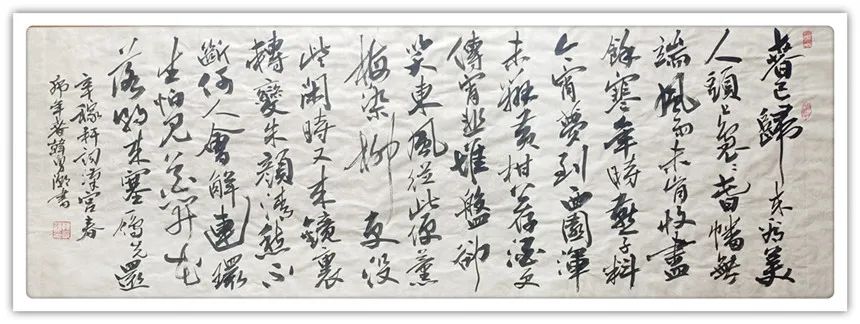 春已歸來看美
人頭上裊裊春幡無
端風雨未肯收盡
餘寒年時燕子料
今宵夢到西園渾
未辦黃柑荐酒更
傳青韭堆盤卻
笑東風從此便薰
梅染柳更沒
些閑時又來鏡裏
轉變朱顏清愁不
斷何人會解連環
生怕見花開花
落朝來塞雁先還
辛稼軒詞漢宮春